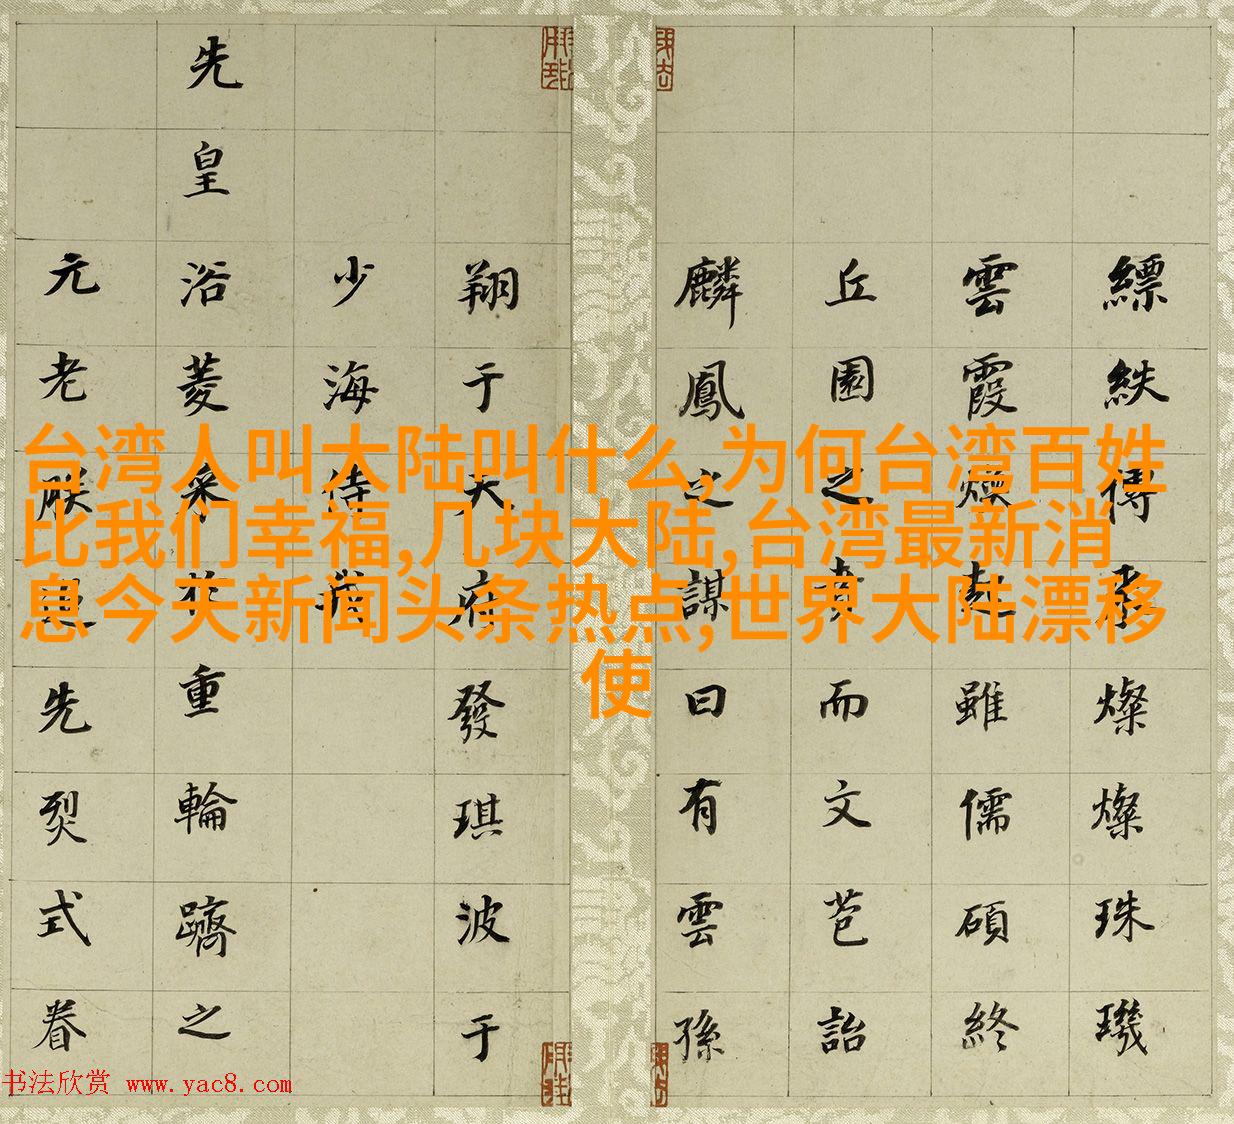 台湾人叫大陆叫什么,为何台湾百姓
比我们幸福,几块大陆,台湾最新消
息今天新闻头条热点,世界大陆漂移
使
縹紩傳燦燦珠璣
雲霞雖儒碩終
丘園之而文芭詒
麟鳳之謀曰有雲孫
翔于天府發琪波于
少海待
先皇浴菱重輪躋之
元老朕先烈式眷
书法欣赏 www.yac8.com